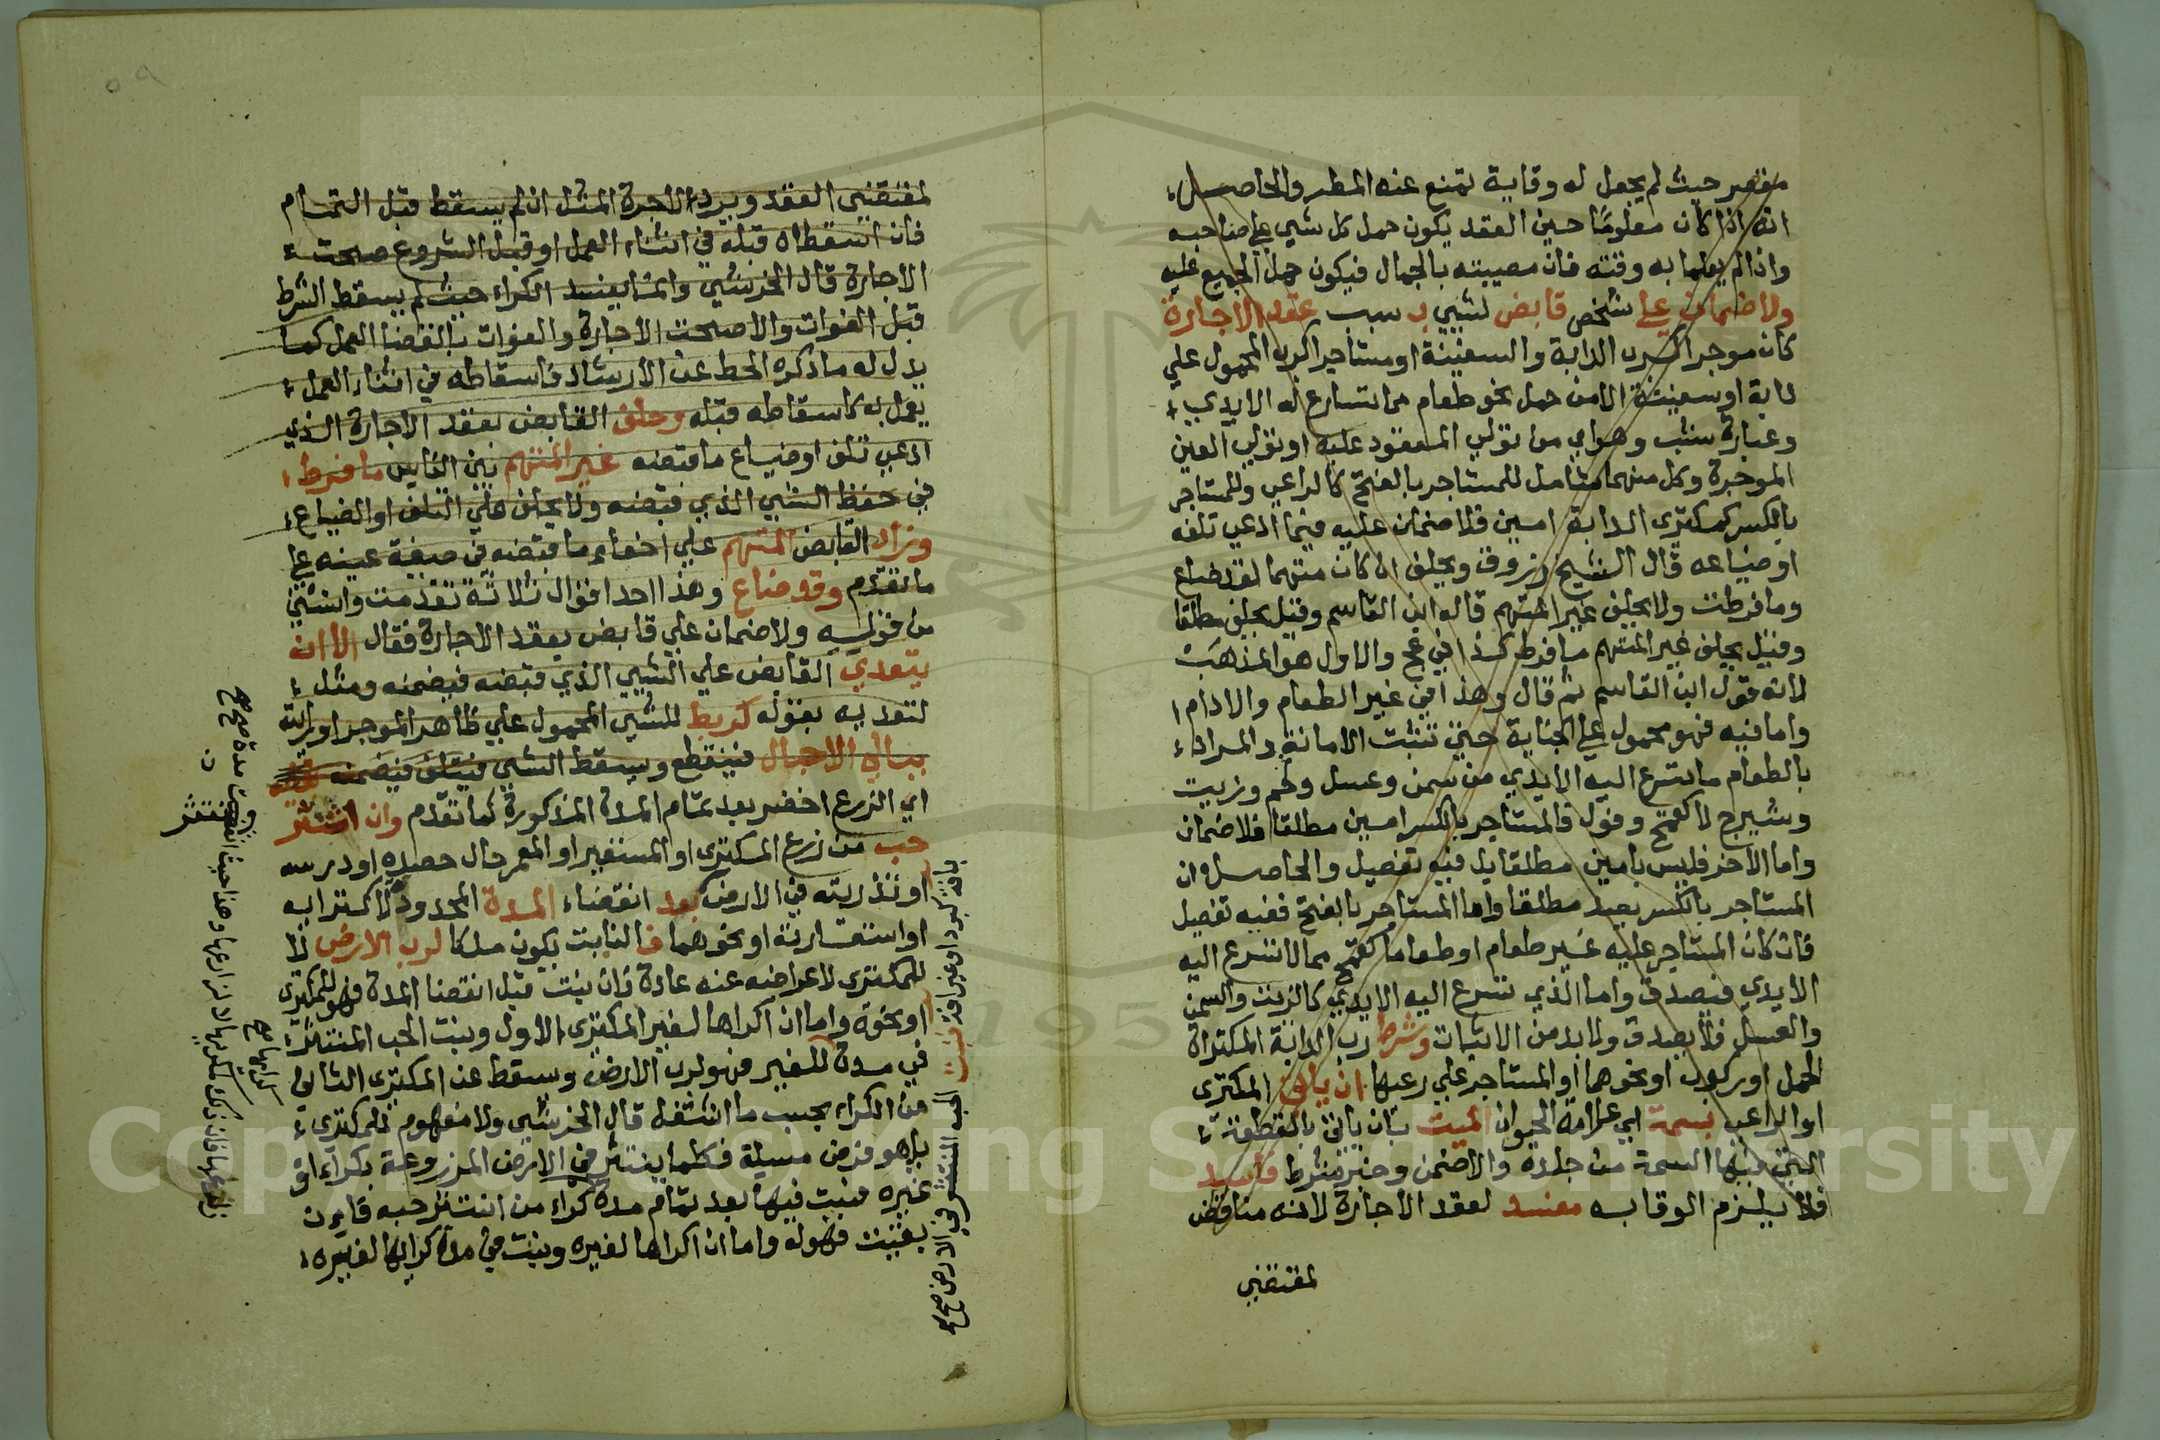 مقصر حيث لم يجعل له وقاية تمنع عنه المطر والحاصل
انه اذا كان معلوما حين العقد يكون حمل كل شي علي صاحبه
واذا لم يعلما به وقته فان مصيبته بالجمال فيكون حمل الجميع عليه
ولا ضمان علي شخص قابض لشيي بسبب عقد الاجارة
كان موجرا كرب الدابة والسفينة او مستاجرا كرب المحمول علي
دابة او سفينة الا من حمل نحو طعام مما تسارع له الايدي
وعبارة شب وهو اي من تولي المعقود عليه او تولي العين
الموجرة وكل منهما شامل للمستاجر بالفتح كالراعي وللمستاجر
بالكسر كمكتري الدابة امين فلا ضمان عليه فيما ادعي تلفه
او ضياعه قال الشيخ زروق ويحلف ان كان متهما لقد ضاع
وما فرطت ولا يحلف غير المتهم قاله ابن القاسم وقيل يحلف مطلقا
وقيل يحلف غير المتهم ما فرط كذا في عج والاول هو المذهب
لانه قول ابن القاسم ثم قال وهذا في غير الطعام والادام
واما فيه فهو محمول علي الخيانة حتي تثبت الامانة والمراد
بالطعام ما تسرع اليه الايدي من سمن وعسل ولحم وزيت
وشيرج لا كقمح وفول فالمستاجر بالكسر امين مطلقا فلا ضمان
واما الاخر فليس بامين مطلقا بل فيه تفصيل والحاصل ان
المستاجر بالكسر يصدق مطلقا واما المستاجر بالفتح ففيه تفصيل
فان كان المستاجر عليه غير طعام او طعاما كقمح مما لا تسرع اليه
الايدي فيصدق واما الذي تسرع اليه الايدي كالزيت والسمن
والعسل فلا يصدق ولا بد من الاثبات وشرط رب الدابة المكتراة
لحمل او ركوب او نحوهما او المستاجر علي رعيها ان ياتي المكتري
او الراعي بسمة اي علامة الحيوان الميت بان ياتي بالقطعة
التي فيها السمة من جلده والا ضمن وخبر شرط فاسد
فلا يلزم الوفا به مفسد لعقد الاجارة لانه مناقض
لمقتضي
لمقتضي العقد ويرد لاجرة المثل ان لم يسقط قبل التمام
فان اسقطاه قبله في اثناء العمل او قبل الشروع صحت
الاجارة قال الخرشي وانما يفسد الكراء حيث لم يسقط الشرط
قبل الفوات والا صحت الاجارة والفوات بانقضا العمل كما
يدل له ما ذكره الحط عن الارشاد فاسقاطه في اثناء العمل
يعمل به كاسقاطه قبله وحلف القابض بعقد الاجارة الذي
ادعي تلف او ضياع ما قبضه غير المتهم بين الناس ما فرط
في حفظ الشيي الذي قبضه ولا يحلف علي التلف او الضياع
وزاد القابض المتهم علي اخفاء ما قبضه في صيغة عينه علي
ما تقدم وقد ضاع وهذا احد اقوال ثلاثة تقدمت واستثني
من قوله ولا ضمان علي قابض بعقد الاجارة فقال الا ان
يتعدي القابض علي الشيي الذي قبضه فيضمنه ومثل
لتعديه بقوله كربط للشيي المحمول علي ظاهر الموجر او دابته
ببالي الاحبال فينقطع ويسقط الشي فيتلف فيضمنه
اي الزرع اخضر بعد تمام المدة المذكورة كما تقدم وان انتثر
حب من زرع المكتري او المستعير او المعمر حال حصيده او درسه
او تذريته في الارض بعد انقضاء المدة المحدودة لاكترا به
او استعارته او نحوهما فالنابت يكون ملكا لرب الارض لا
للمكتري لاعراضه عنه عادة فان نبت قبل انقضا المدة فهو للمكتري
او نحوه واما ان اكراها لغير المكتري الاول ونبت الحب المنتثر
في مدة الغير فهو لرب الارض وسقط عن المكتري الثاني
من الكراء بحسب ما اشغله قال الخرشي ولا مفهوم للمكتري
بل هو فرض مسيلة فكلما ينتثر في الارض المزروعة بكراء او
غيره فنبت فيها بعد تمام مدة كراء من انتثر حبه فان
بقيت فهو له واما ان اكراها لغيره ونبت في مدة كرايها لغيره
نبت الحب المنتثر في الارض صح